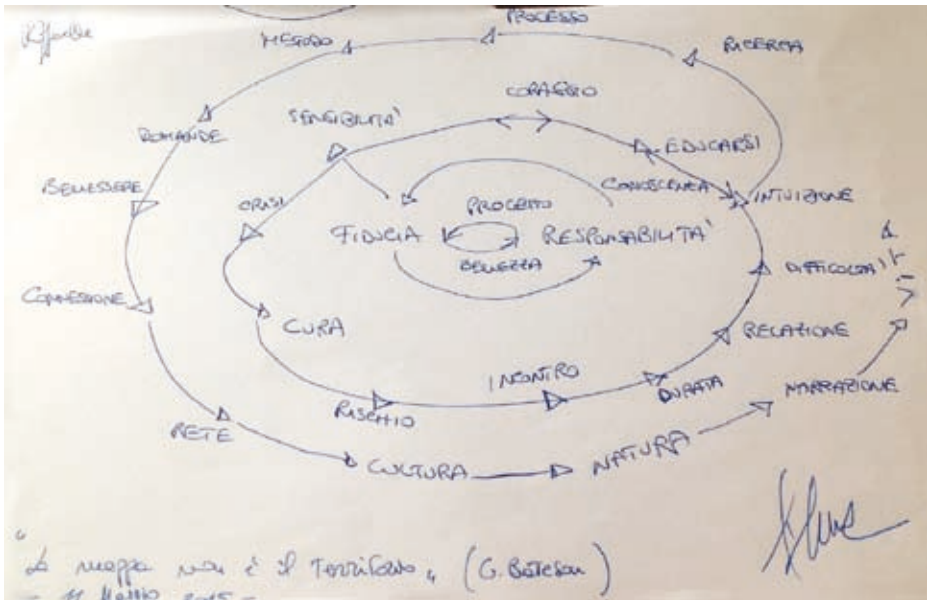 PROCESSO
METODO
RICERCA
CORAGGIO
SENSIBILITA'
DOMANDE
EDUCARSI
BENESSERE
CONOSCENZA
INTUIZIONE
CRISI
PROGETTO
FIDUCIA
RESPONSABILITA'
BELLEZZA
DIFFICOLTA'
CONNESSIONE
CURA
RELAZIONE
INCONTRO
DURATA
NARRAZIONE
RISCHIO
RETE
CULTURA
NATURA
"La mappa non è il Territorio" (G. Bateson)